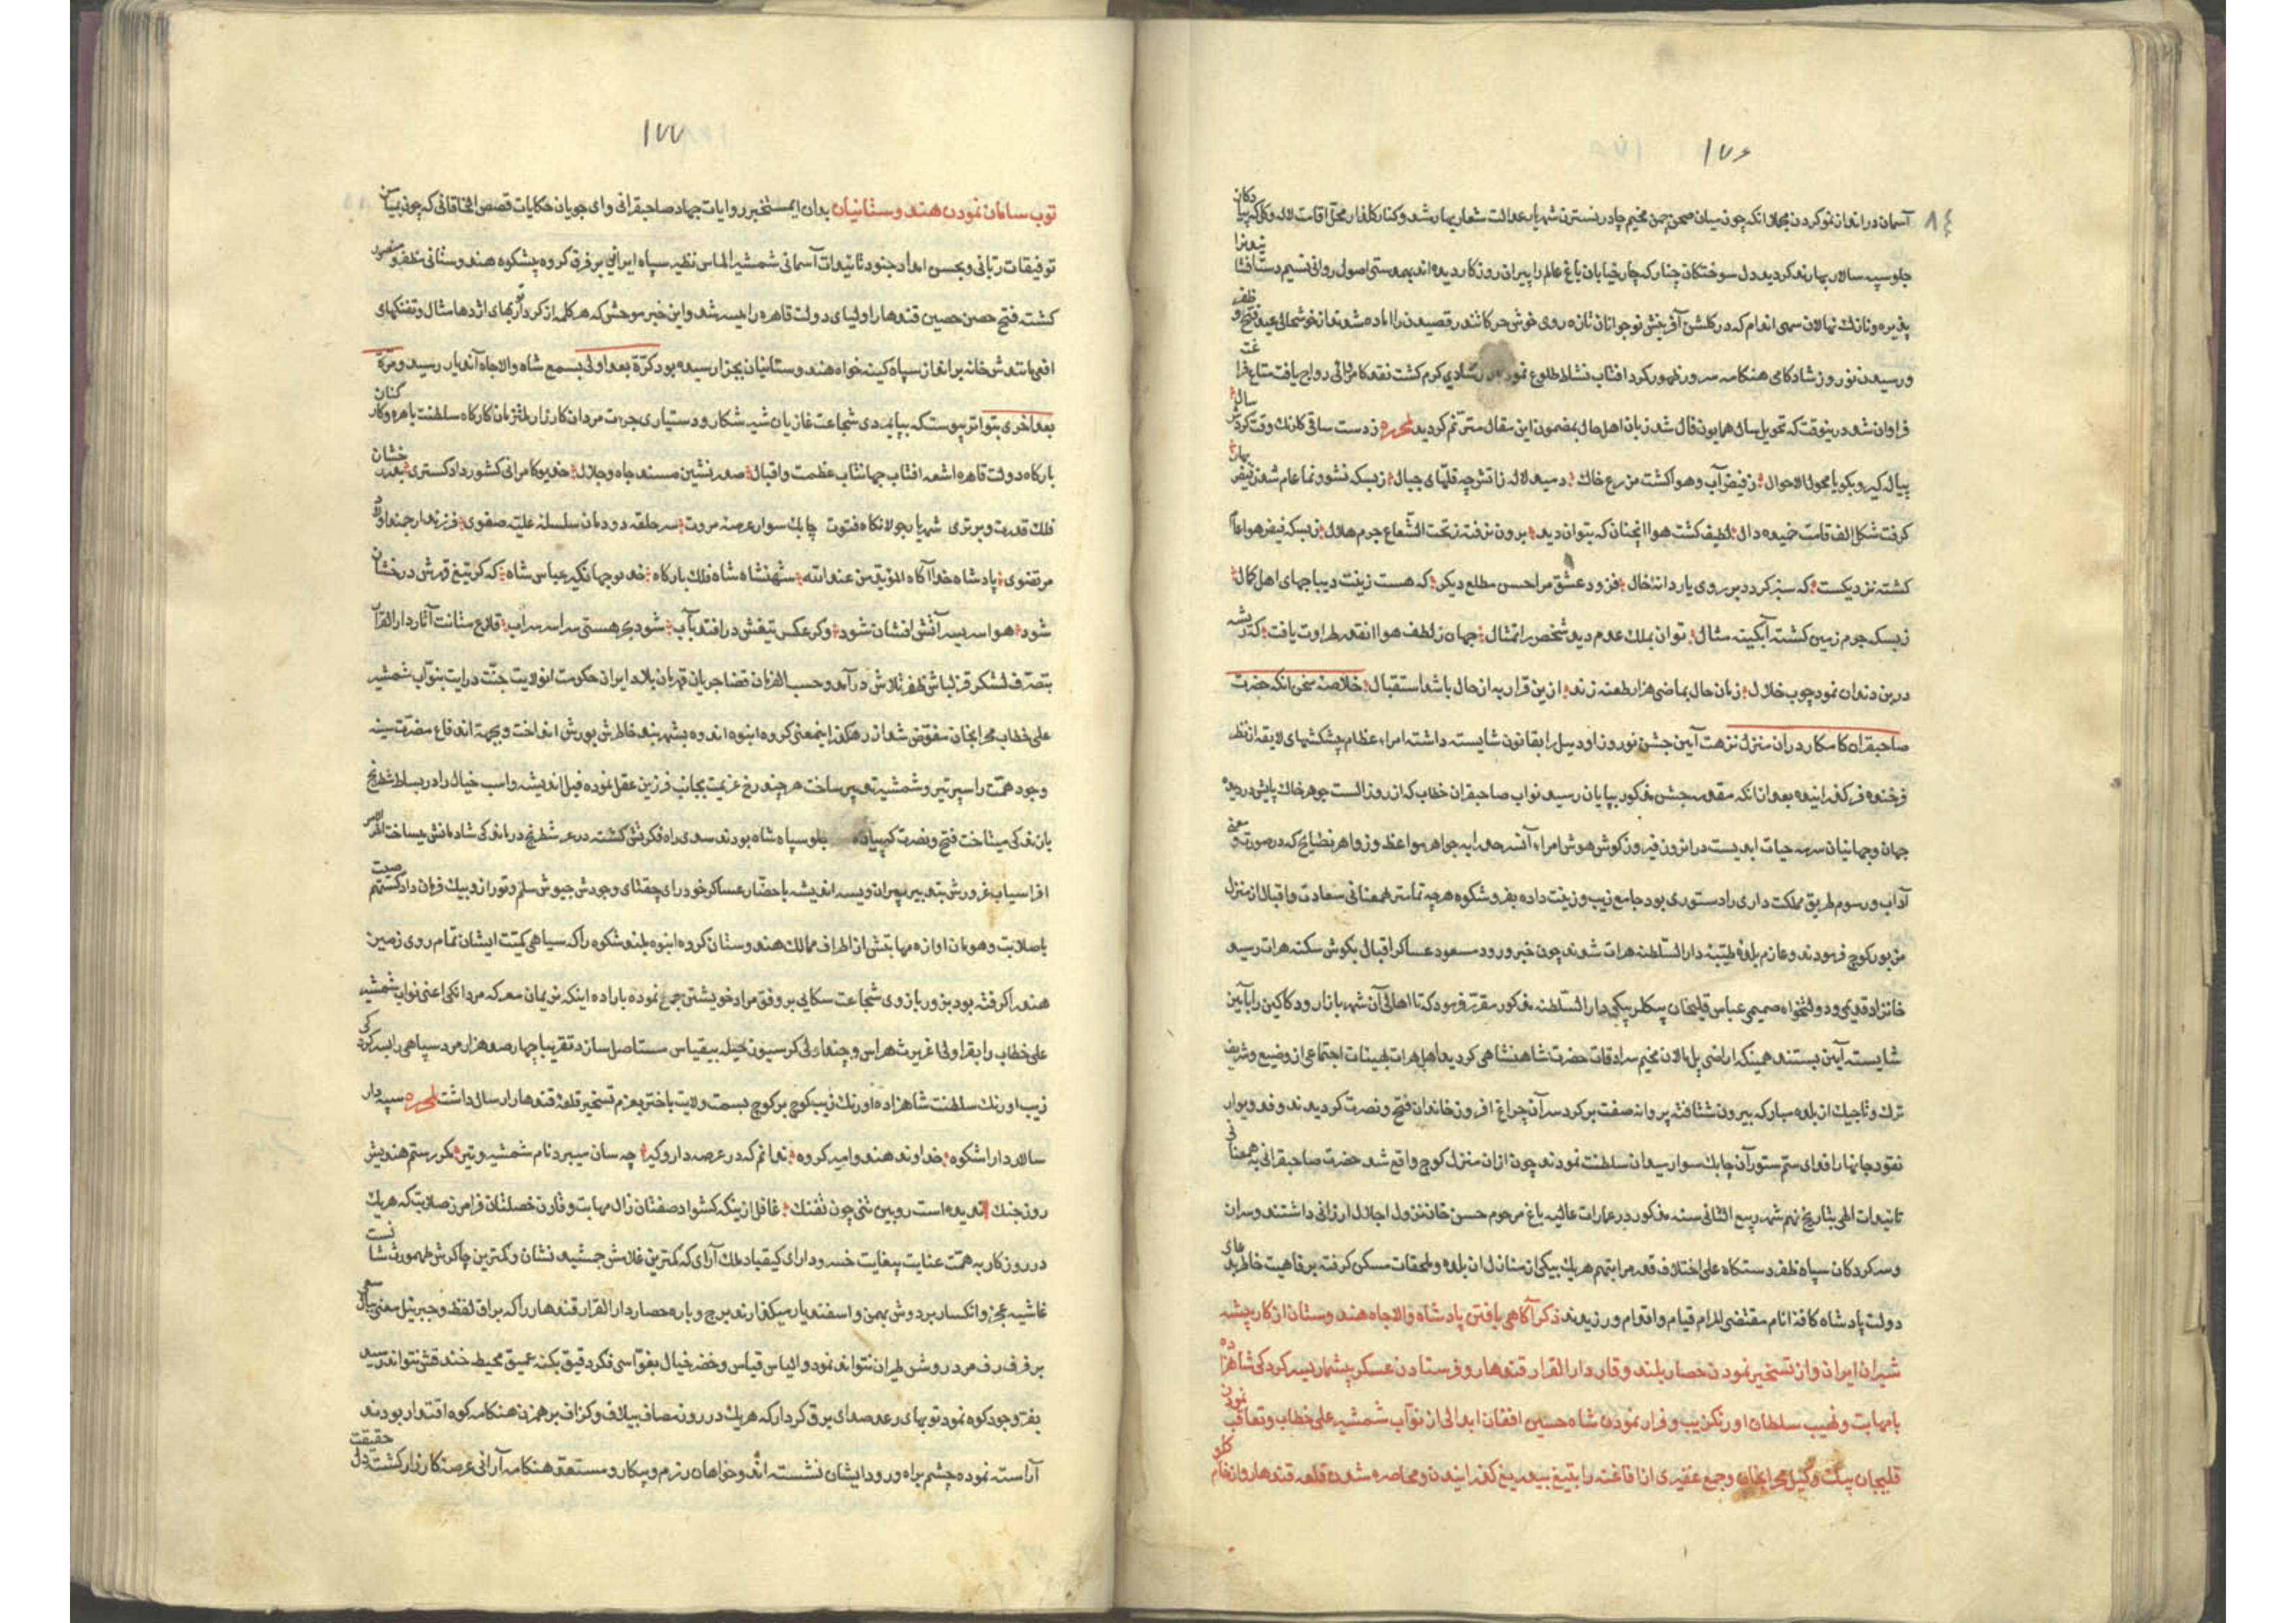 ۱۷۶
آسمان در انداز نمو کردن مجملا انکه چون میان صحن چمن مخیم چادر نسترن شهریار عدالت شعار بهار شد و کنار کلفار محل اقامت لاله و کل کردید
جلو سپه سالار بهار ند کردید دل سوختکان چنار که چار خیابان باغ عالم را پیران روزکار دیده اند بهمدستی اصول روانی نسیم دست افشا
پذیره و نازک نهالان سهی اندام که در کلشن آفرینش نوجوانان تازه روی خوش حرکاتند رقصیدن را اماده شدند از خوشحالی عید فتح و ظفر
و رسیدن نوروز شادکامی هنکامه سرور ظهور کرد افتاب نشاط طلوع نمود شادی کرم کشت نقد کامرانی رواج یافت متاع فراغت
فراوان شد درینوقت که تحویل سال همایون فال شد زبان اهل حال بمضمون این مقال مترنم کردید لمحرره ز دست ساقی کلرنک وقت کردش سال
پیاله کیر و بکو یا محول الاحوال ز فیض آب و هوا کشت مزرع خاک دمید لاله ز اتش چه قلهای جبال ز بسکه نشو و نما عام شد ز فیض بهار
کرفت شکل الف قامت خمیده دال لطیف کشت هوا انچنان که بتوان دید برون نرفته ز تحت الشعاع جرم هلال ز بسکه فیض هوا عام
کشته نزدیکست که سبز کردد بر روی یار دانه خال فزود عشق مرا حسن مطلع دیکر که هست زینت دیباجهای اهل کمال
ز بسکه جرم زمین کشته آبکینه مثال توان بملک عدم دید شخص را تمثال جهان ز لطف هوا انقدر طراوت یافت که ریشه
در بن دندان نمود چوب خلال زمان حال بماضی هزار طعنه زند ازین قرار به از حال باشد استقبال خلاصه سخن انکه حضرت
صاحبقران کامکار در ان منزل نزهت آیین جشن نوروز اودیل را بقانون شایسته داشته امراء عظام پیشکشهای لایقه از نظر
فرخنده فر کذرانیده بعد از انکه مقدمه جشن مذکور بپایان رسید نواب صاحبقران خطاب که از روز الست جوهر خاک پایش در دیده
جهان و جهانیان سرمه حیات ابدیست در انزوز فیروز کوش هوش امراء آنسرحد را به جواهر مواعظ و زواهر نصایح که در صورت و معنی
آداب و رسوم طریق مملکت داری را دستوری بود جامع زیب و زینت داده بفر و شکوه هر چه تمامتر همعنانی سعادت و اقبال از منزل
مزبور کوچ فرمودند و عازم بلده طیبه دار السلطنه هرات شدند چون خبر ورود مسعود عساکر اقبال بکوش سکنه هرات رسید
خانزاد قدیمی و دولتخواه صمیمی عباس قلیخان بیکلربیکی دار السلطنه مذکور مقرر فرمود که تا اهالی آن شهر بازار و دکاکین را بآیین
شایسته آیین بستند همینکه اراضی پل مالان مخیم سرادقات حضرت شاهنشاهی کردید اهل هرات بهیئات اجتماعی از وضیع و شریف
ترک و تاجیک از بلده مبارکه بیرون شتافته پروانه صفت بر کرد سر آن چراغ افروز خاندان فتح و نصرت کردیدند و فدویوار
نقود جانها را فدای ستم ستور آن چابک سوار میدان سلطنت نمودند چون از ان منزل کوچ واقع شد حضرت صاحبقرانی به همعنانی
تائیدات الهی بتاریخ نهم شهر ربیع الثانی سنه مذکور در عمارات عالیه باغ مرحوم حسن خان نزول اجلال ارزانی داشتند و سران
و سرکردکان سپاه ظفر دستکاه علی اختلاف قدر مراتبهم هر یک بیکی از منازل ان بلده و ملحقات مسکن کرفته برفاهیت خاطر بدعای
دولت پادشاه کافه انام مقتضی المرام قیام و اقدام ورزیدند ذکر آکاهی یافتن پادشاه والاجاه هندوستان از کار پیشه
شیران ایران و از تسخیر نمودن حصار بلند وقار دار القرار قندهار و فرستادن عسکر بیشمار بسرکردکی شاهزاده
با مهابت و نهیب سلطان اورنکزیب و فرار نمودن شاه حسین افغان ابدالی از نواب شمشیر علی خطاب و تعاقب نمودن
قلیجان بیک وکیل محرابخان و جمع غفیری از افاغنه را بتیغ بیدریغ کذرانیدن و محاصره شدن قلعه قندهار و از غام کلو
۱۷۷
توب سامان نمودن هندوستانیان بدان ایمستخبر روایات جهاد صاحبقرانی و ای جویان حکایات قصص الخاقانی که چون بمیامن
توفیقات ربانی و بحسن امداد جنود تائیدات آسمانی شمشیر الماس نظیر سپاه ایرانی بر فرق کروه پشکوه هندوستانی مظفر و منصور
کشته فتح حصن حصین قندهار اولیای دولت قاهره را میسر شد و این خبر موحش که هر کلمه از کردار توبهای اژدها مثال و تفنکهای
افعی مانند ش خانه برانداز سپاه کینه خواه هندوستانیان بجزار رسیده بود کرة بعد اولی بسمع شاه والاجاه آندیار رسید و مرة
بعد اخری بتواتر پیوست که بپایمردی شجاعت غازیان شیر شکار و دستیاری جرءت مردان کارزار ملتزمان کارکاه سلطنت باهره و کارکنان
بارکاه دولت قاهره اشعه افتاب جهانتاب عظمت و اقبال صدر نشین مسند جاه و جلال خدیو کامرانی کشور دادکستری بدر خشان
فلک قدرت و برتری شهریار جولانکاه فتوت چابک سوار عرصه مروت سر حلقه دودمان سلسله علیه صفوی فرزند ارجمند اولاد
مرتضوی پادشاه خدا آکاه المؤید من عند الله شهنشاه شاه فلک بارکاه خدیو جهانکیر عباس شاه که کر تیغ قهرش درخشان
شود هوا سر بسر آتش افشان شود و کر عکس تیغش در افتد بآب شود بحر هستی سراسر سراب قلاع متانت آثار دار القرار
بتصرف لشکر قزلباش ظفر تلاش در آمد و حسب الفرمان قضا جریان قهرمان بلاد ایران حکومت انولایت جنت درایت بنواب شمشیر
علی خطاب محرابخان مفوض شد از رهکذر اینمعنی کروه انبوه اندوه بشهربند خاطرش یورش انداخت و بجهة اندفاع مضرت سینه
وجود همت را سپر تیر و شمشیر تدبیر ساخت هر چند رخ عزیمت بجانب فرزین عقل نموده فیل اندیشه و اسب خیال را در بساط شطرنج
بازندکی میتاخت فتح و نصرت جلو سپاه شاه بودند سدی راه فکرتش کشته در عرصه شطرنج درماندکی شاه ماتش میساخت اخر الامر
افراسیاب غرورش بتدبیر پیران ویسه اندیشه باحضار عساکر خود رای چغتای وجودش جیوش سلم و تور را نزد بیک فرمان داد کستهم صیت
با صلابت و هومان اوازه مهابتش از اطراف ممالک هندوستان کروه انبوه بلند شکوه را که سیاهی کمیت ایشان تمام روی زمین
هند را کرفته بود بزور بازوی شجاعت سکالی بر وفق مراد خویشتن جمع نموده باراده اینکه نریمان معرکه مردانکی اعنی نواب شمشیر
علی خطاب را بقراولی عزیمت هراس و چنداولی کرسیون حیله بیقیاس مستاصل سازد تقریبا چهار صد هزار مرد سپاهی را بسرکردکی
زیب اورنک سلطنت شاهزاده اورنک زیب کوچ بر کوچ بسمت ولایت باختر بعزم تسخیر قلعه قندهار ارسال داشت لمحرره سپهدار
سالار دارا شکوه خداوند هند و امیر کروه ندانم که در عرصه دار و کیر چه سان میبرد نام شمشیر و تیر مکر رستم هند پیش
روز جنک ندیده است رویین تنی چون تفنک غافل ازینکه کشواد صفتان زال مهابت و قارن خصلتان فرامرز صلابت که هر یک
در روزکار به همت عنایت بیغایت خسرو دارای کیقباد ملک آرای که کمترین غلامش جمشید نشان و کمترین چاکرش طهمورث شانست
غاشیه عجز و انکسار بر دوش بهمن و اسفندیار میکذارند برج و باره حصار دار القرار قندهار را که براق لفظ و جبرئیل معنی ببال سعی
بر فرف رف مرد روشن طیران نتواند نمود و الیاس قیاس و خضر خیال بغواصی فکر دقیق بکنه عمیق محیط خندقش نتواند رسید
بفر وجود کوه نمود توبهای رعد صدای برق کردار که هر یک در روز مصاف بیلاف و کزاف بر همزن هنکامه کوه اقتدار بودند
آراسته نموده چشم براه ورود ایشان نشسته اند و خواهان رزم و پیکار و مستعد هنکامه آرائی عرصه کارزار کشت دل حقیقت